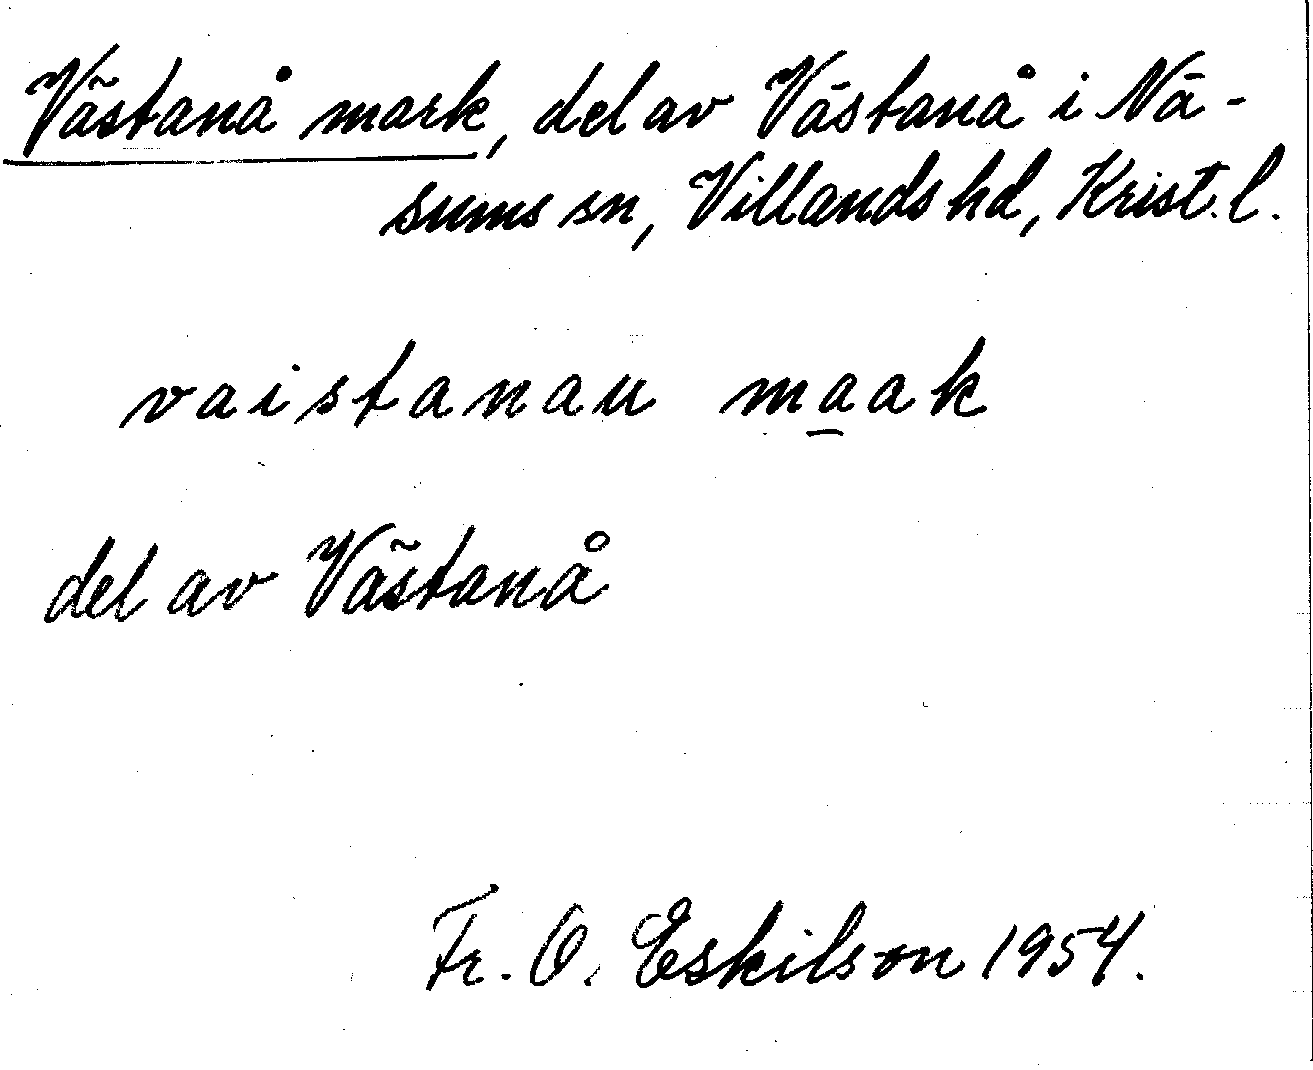 Västanå mark, del av Västanå i Nä-
sums sn, Villands hd, Krist. l.
vaistanau ma̲ak
del av Västanå
Fr. O. Eskilson 1954.